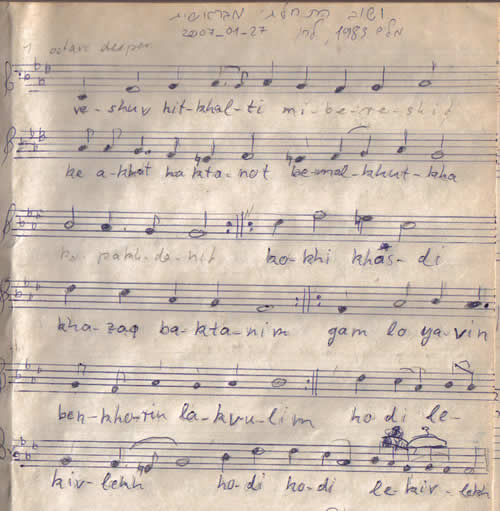 ושוב התחלתי מבראשית
מלים 1983, לחן 2007-01-27
1 octave deeper
ve-shuv hit-khal-ti mi-be-re-shit
be a-khat hakta-not be-mal-khut-kha
ko-khi khas-di
kha-zaq ba-kta-nim gam lo ya-vin
ben-kho-rin la-kvu-lim ho-di le-
kiv-lekh ho-di ho-di le-kiv-lekh